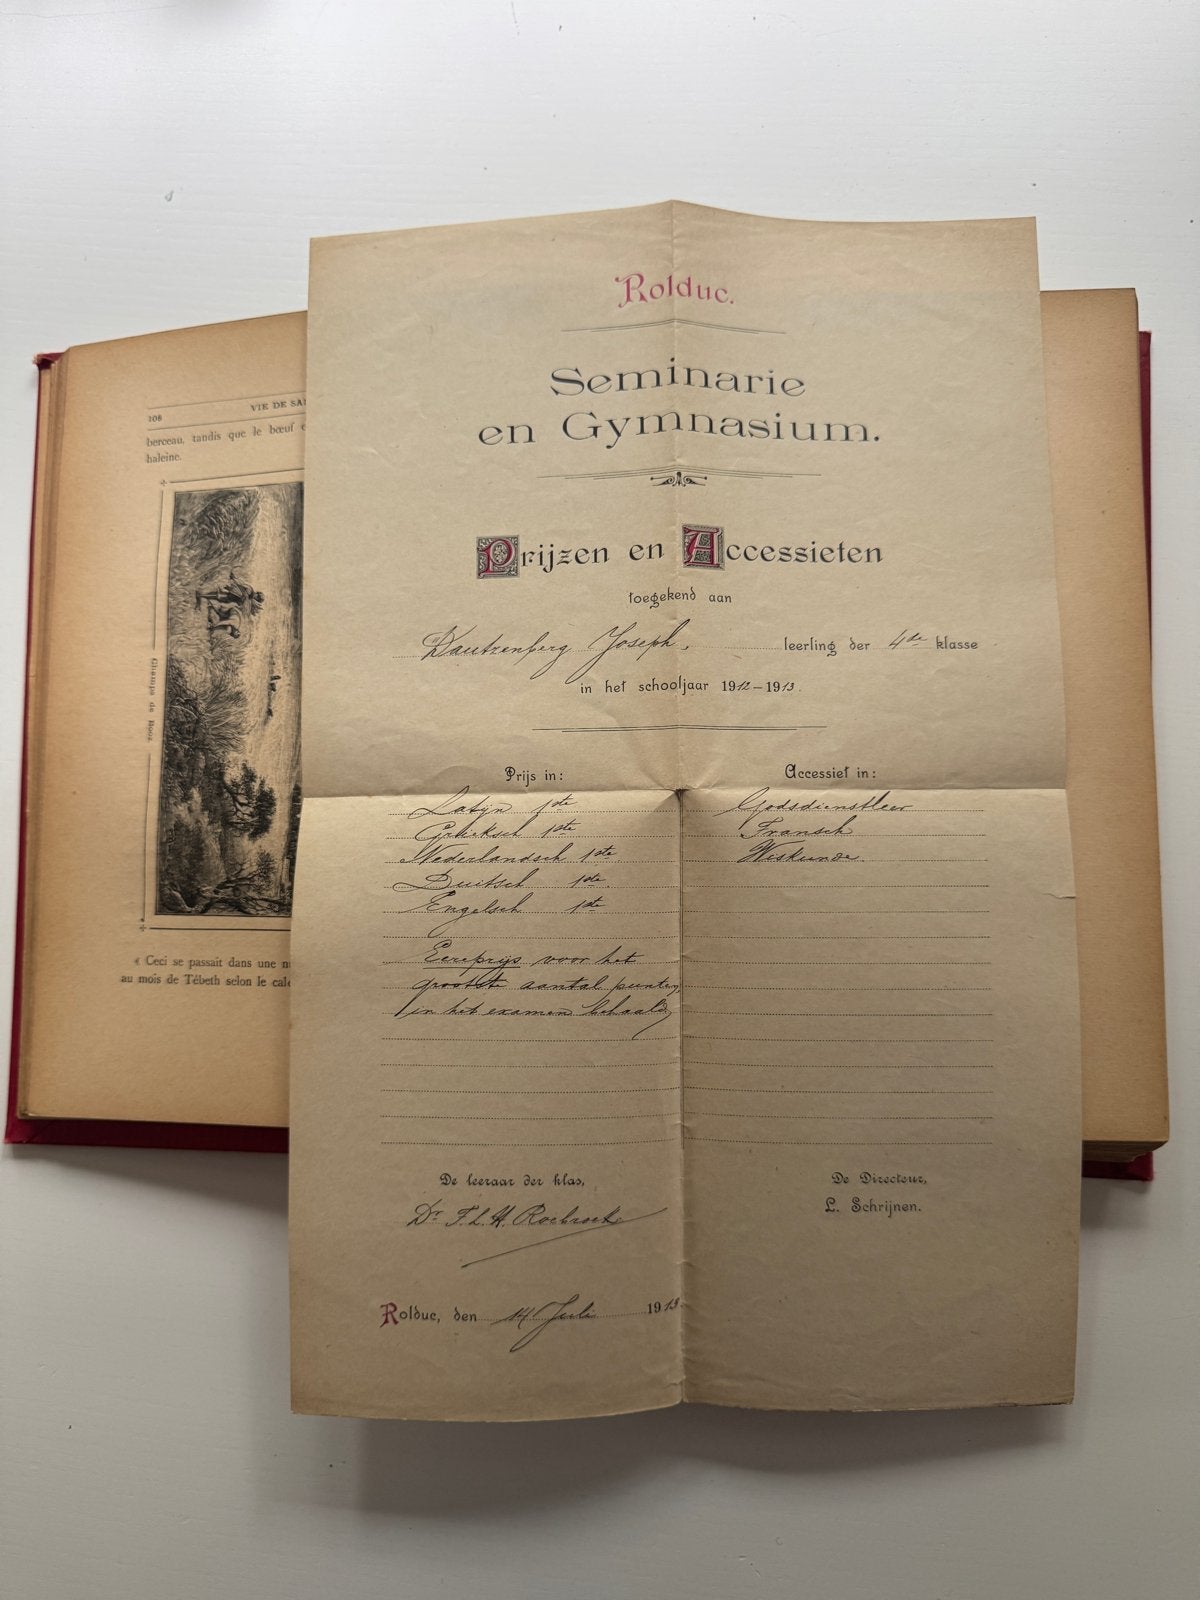 108
VIE DE SA
berceau, tandis que le bœuf
haleine.
Champs de Booz.
« Ceci se passait dans une
au mois de Tébeth selon le
Rolduc.
Seminarie
en Gymnasium.
Prijzen en Accessieten
toegekend aan
Dautzenberg Joseph. leerling der 4de klasse
in het schooljaar 1912-1913.
Prijs in:
Latijn 1ste
Grieksch 1ste
Nederlandsch 1ste
Duitsch 1ste
Engelsch 1ste
Eereprijs voor het
grootste aantal punten
in het examen behaald
Accessiet in:
Godsdienstleer
Fransch
Wiskunde
De leeraar der klas,
Dr F. L. H. Roebroek
De Directeur,
L. Schrijnen.
Rolduc, den 14 Juli 1913